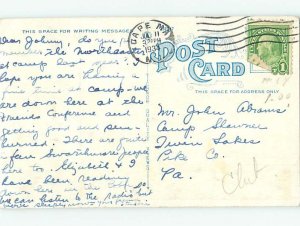 THIS SPACE FOR WRITING MESSAGES
Dear Johnny, do you re-
member the
camp last year? I
hope you are having a
fine time at camp - we
are down here at the
Friends Conference and
getting good and sun-
burned. There are quite
a few Swarthmore people
here so Elizabeth & I
have been reading
down here in the
we can listen to the radio
CAPE MAY
JUL 11
1934
POST
CARD
THIS SPACE FOR ADDRESS ONLY
Mr. John Abrams
Camp Shawnee
Twin Lakes
Pike Co.
Pa.
1